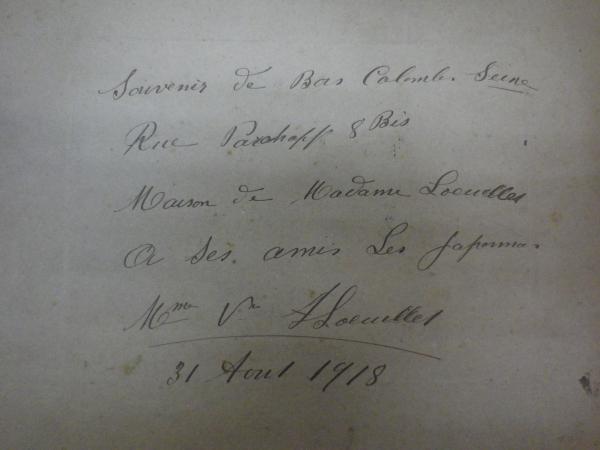 Souvenir de Bas Colombe. Seine
Rue 8 Bis
Maison de Madame Loeuillet
A Ses. amis Les Japonnais
Mme Vve Loeuillet
31 Aout 1918